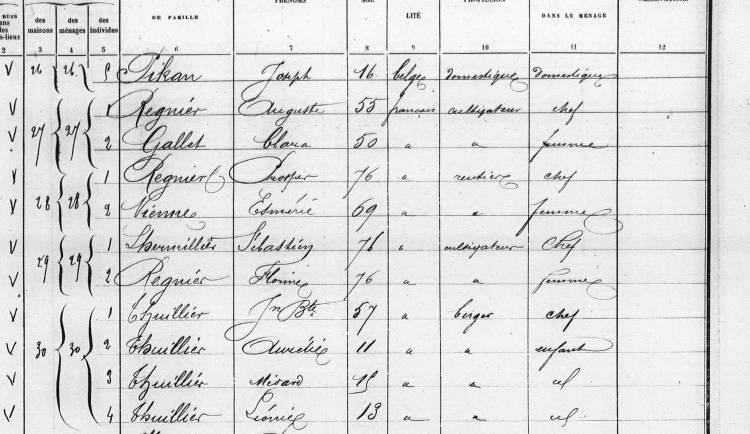 DE FAMILLE PRÉNOMS LITÉ DANS LE MENAGE
des maisons des ménages des individus
2 3 4 5 6 7 8 9 10 11 12
26 26 5 Pikan Joseph 16 belge domestique domestique
27 27 1 Regnier Auguste 55 français cultivateur chef
2 Gallet Clara 50 " " femme
28 28 1 Regnier Prosper 76 " rentier chef
2 Vienne Esmérie 69 " " femme
29 29 1 Sébastien 76 " cultivateur chef
2 Regnier Florine 76 " " femme
30 30 1 Thuillier Jn Bte 57 " berger chef
2 Thuillier Aurélie 11 " " enfant
3 Thuillier Médard 15 " " id
4 Thuillier Léonie 13 " " id